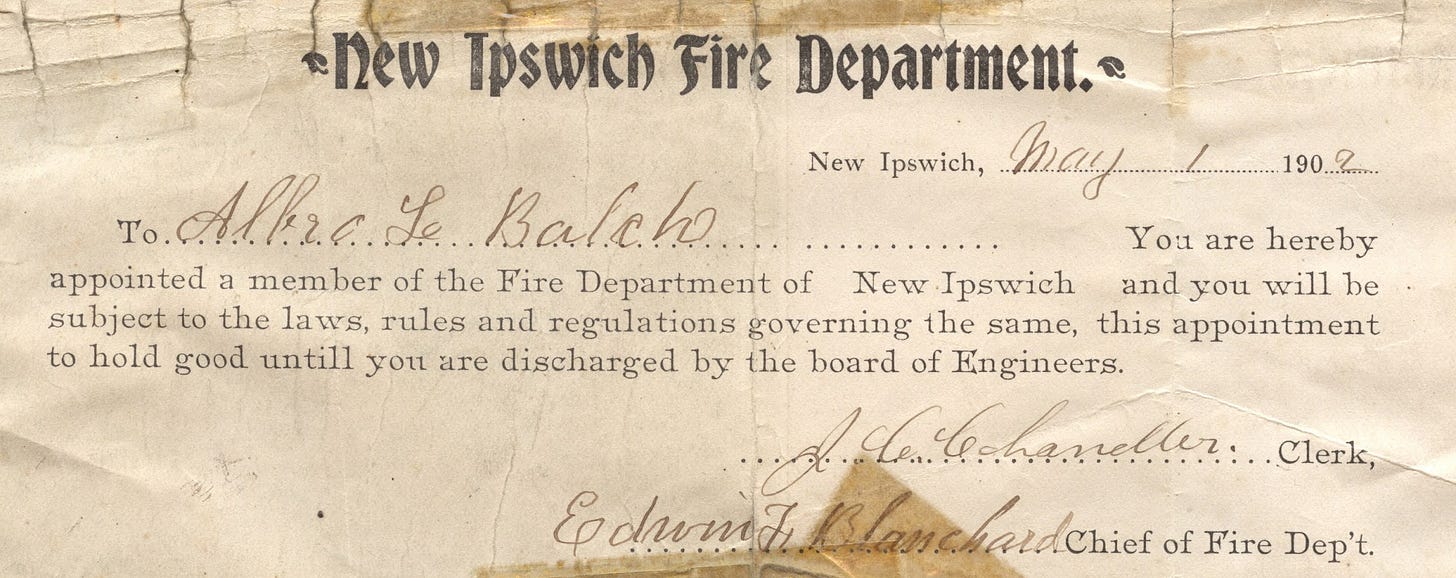 New Ipswich Fire Department.
New Ipswich, May 1 1902
To Albro L Balch You are hereby
appointed a member of the Fire Department of New Ipswich and you will be
subject to the laws, rules and regulations governing the same, this appointment
to hold good untill you are discharged by the board of Engineers.
J C Chandler. Clerk,
Edwin F Blanchard Chief of Fire Dep't.